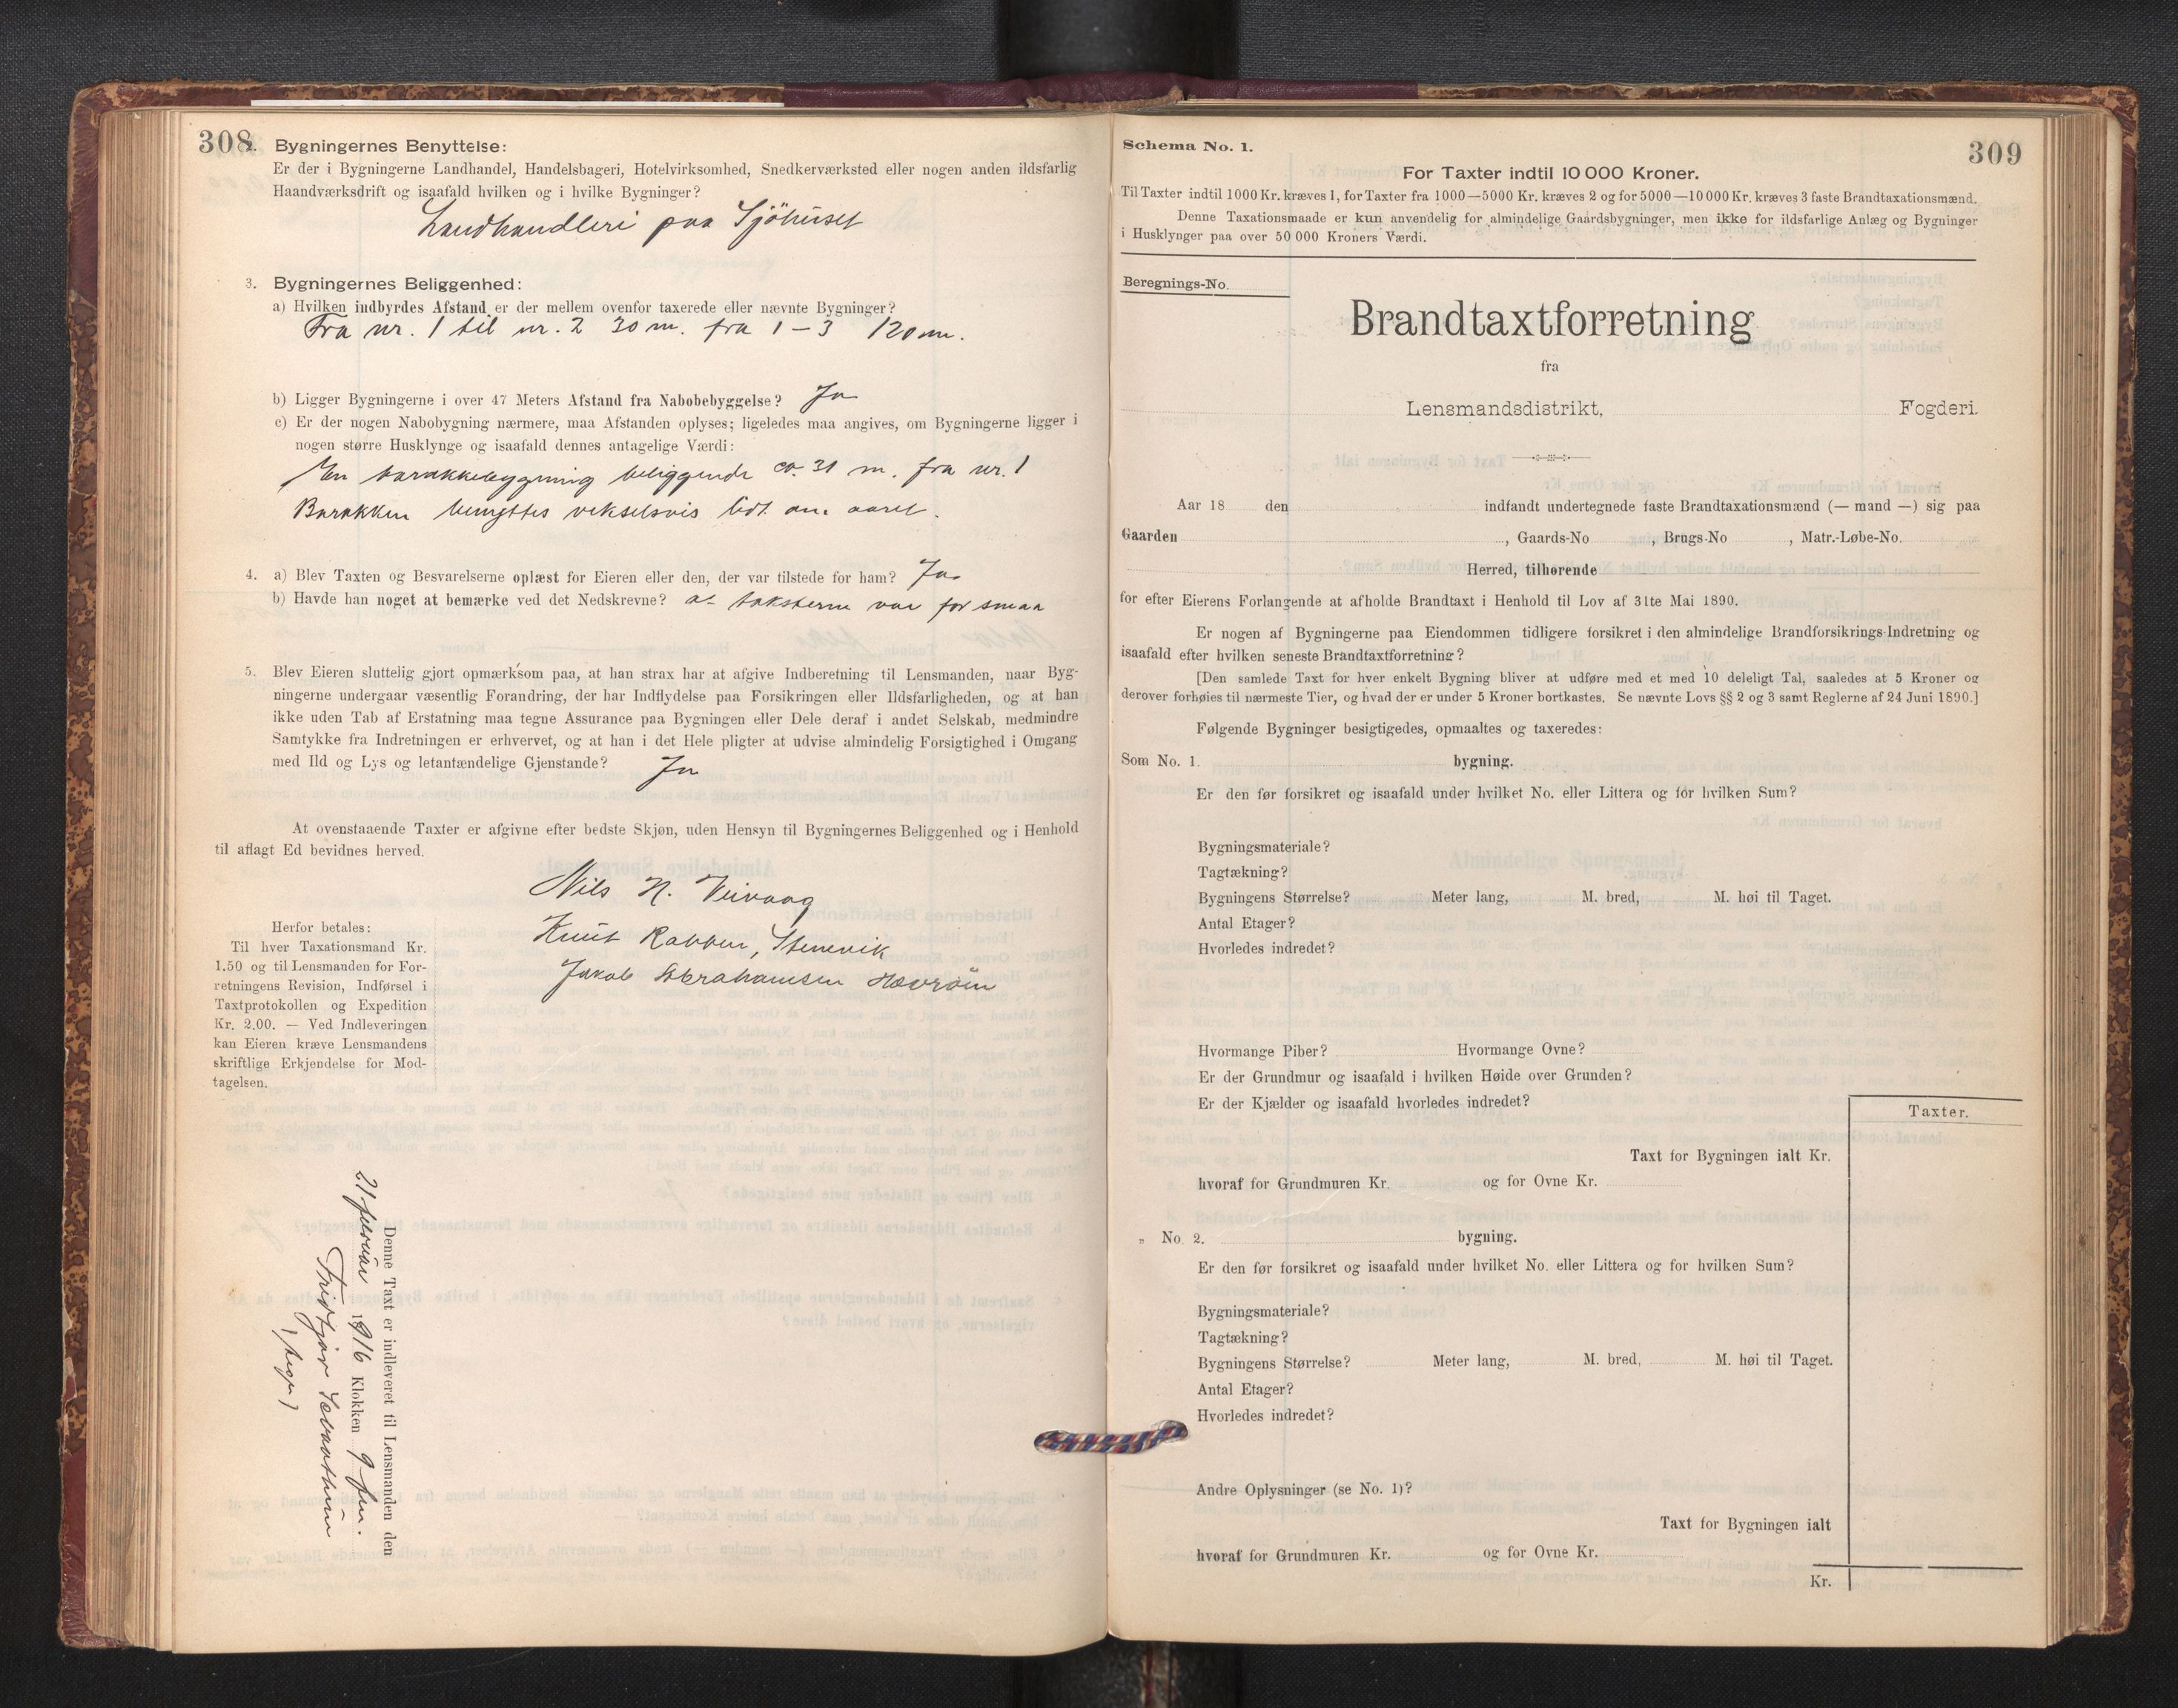 308
2. Bygningernes Benyttelse:
Er der i Bygningerne Landhandel, Handelsbageri, Hotelvirksomhed, Snedkerværksted eller nogen anden ildsfarlig
Haandværksdrift og isaafald hvilken og i hvilke Bygninger?
Landhandleri paa Sjöhuset
3. Bygningernes Beliggenhed:
a) Hvilken indbyrdes Afstand er der mellem ovenfor taxerede eller nævnte Bygninger?
Fra nr. 1 til nr. 2 30 m. fra 1 – 3 120 m.
b) Ligger Bygningerne i over 47 Meters Afstand fra Nabobebyggelse? Ja
c) Er der nogen Nabobygning nærmere, maa Afstanden oplyses; ligeledes maa angives, om Bygningerne ligger i
nogen større Husklynge og isaafald dennes antagelige Værdi:
En barakkebygning beliggende ca. 31 m. fra nr. 1
Barakken benyttes vekselsvis lidt om aaret.
4. a) Blev Taxten og Besvarelserne oplæst for Eieren eller den, der var tilstede for ham? Ja
b) Havde han noget at bemærke ved det Nedskrevne? at taksterne var for smaa
5. Blev Eieren sluttelig gjort opmærksom paa, at han strax har at afgive Indberetning til Lensmanden, naar Byg-
ningerne undergaar væsentlig Forandring, der har Indflydelse paa Forsikringen eller Ildsfarligheden, og at han
ikke uden Tab af Erstatning maa tegne Assurance paa Bygningen eller Dele deraf i andet Selskab, medmindre
Samtykke fra Indretningen er erhvervet, og at han i det Hele pligter at udvise almindelig Forsigtighed i Omgang
med Ild og Lys og letantændelige Gjenstande? Ja
At ovenstaaende Taxter er afgivne efter bedste Skjøn, uden Hensyn til Bygningernes Beliggenhed og i Henhold
til aflagt Ed bevidnes herved.
Nils N. Veivaag
Knut Rabben, Stenevik
Jakob Abrahamsen Hovröin
Herfor betales:
Til hver Taxationsmand Kr.
1.50 og til Lensmanden for For-
retningens Revision, Indførsel i
Taxtprotokollen og Expedition
Kr. 2.00. — Ved Indleveringen
kan Eieren kræve Lensmandens
skriftlige Erkjendelse for Mod-
tagelsen.
Denne Taxt er indleveret til Lensmanden den
21 februar 1916 Klokken 9 fm.
Fridtjov
309
Schema No. 1.
For Taxter indtil 10 000 Kroner.
Til Taxter indtil 1000 Kr. kræves 1, for Taxter fra 1000—5000 Kr. kræves 2 og for 5000—10 000 Kr. kræves 3 faste Brandtaxationsmænd.
Denne Taxationsmaade er kun anvendelig for almindelige Gaardsbygninger, men ikke for ildsfarlige Anlæg og Bygninger
i Husklynger paa over 50 000 Kroners Værdi.
Beregnings-No.
Brandtaxtforretning
fra
Lensmandsdistrikt, Fogderi.
Aar 18 den indfandt undertegnede faste Brandtaxationsmænd (— mand —) sig paa
Gaarden , Gaards-No , Brugs-No , Matr.-Løbe-No.
Herred, tilhørende
for efter Eierens Forlangende at afholde Brandtaxt i Henhold til Lov af 31te Mai 1890.
Er nogen af Bygningerne paa Eiendommen tidligere forsikret i den almindelige Brandforsikrings-Indretning og
isaafald efter hvilken seneste Brandtaxtforretning?
[Den samlede Taxt for hver enkelt Bygning bliver at udføre med et med 10 deleligt Tal, saaledes at 5 Kroner og
derover forhøies til nærmeste Tier, og hvad der er under 5 Kroner bortkastes. Se nævnte Lovs §§ 2 og 3 samt Reglerne af 24 Juni 1890.]
Følgende Bygninger besigtigedes, opmaaltes og taxeredes:
Som No. 1. bygning.
Er den før forsikret og isaafald under hvilket No. eller Littera og for hvilken Sum?
Bygningsmateriale?
Tagtækning?
Bygningens Størrelse? Meter lang, M. bred, M. høi til Taget.
Antal Etager?
Hvorledes indredet?
Hvormange Piber? Hvormange Ovne?
Er der Grundmur og isaafald i hvilken Høide over Grunden?
Er der Kjælder og isaafald hvorledes indredet?
Taxter.
Taxt for Bygningen ialt Kr.
hvoraf for Grundmuren Kr. og for Ovne Kr.
„ No. 2. bygning.
Er den før forsikret og isaafald under hvilket No. eller Littera og for hvilken Sum?
Bygningsmateriale?
Tagtækning?
Bygningens Størrelse? Meter lang, M. bred, M. høi til Taget.
Antal Etager?
Hvorledes indredet?
Andre Oplysninger (se No. 1)?
Taxt for Bygningen ialt
hvoraf for Grundmuren Kr. og for Ovne Kr.
Kr.